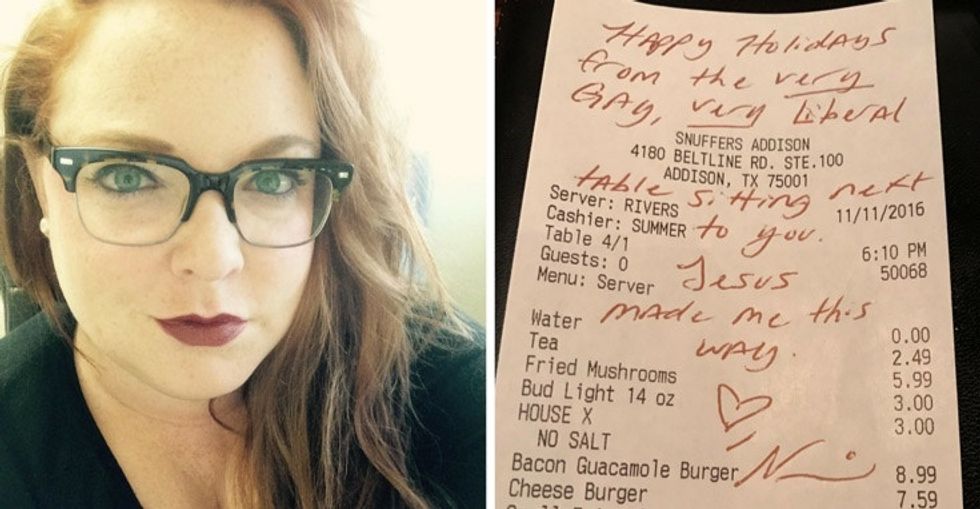 Happy Holidays
from the very
Gay, very Liberal
SNUFFERS ADDISON
4180 BELTLINE RD. STE.100
ADDISON, TX 75001
table sitting next
Server: RIVERS 11/11/2016
Cashier: SUMMER to you.
Table 4/1 6:10 PM
Guests: 0 50068
Jesus
Menu: Server
made me this
Water 0.00
way.
Tea 2.49
Fried Mushrooms 5.99
Bud Light 14 oz 3.00
HOUSE X 3.00
NO SALT
Bacon Guacamole Burger 8.99
Cheese Burger 7.59